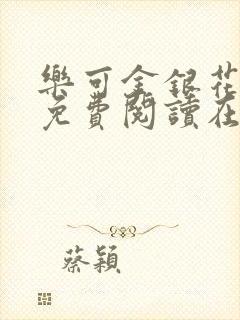 樂可金銀花
免費閱讀在
蔡穎